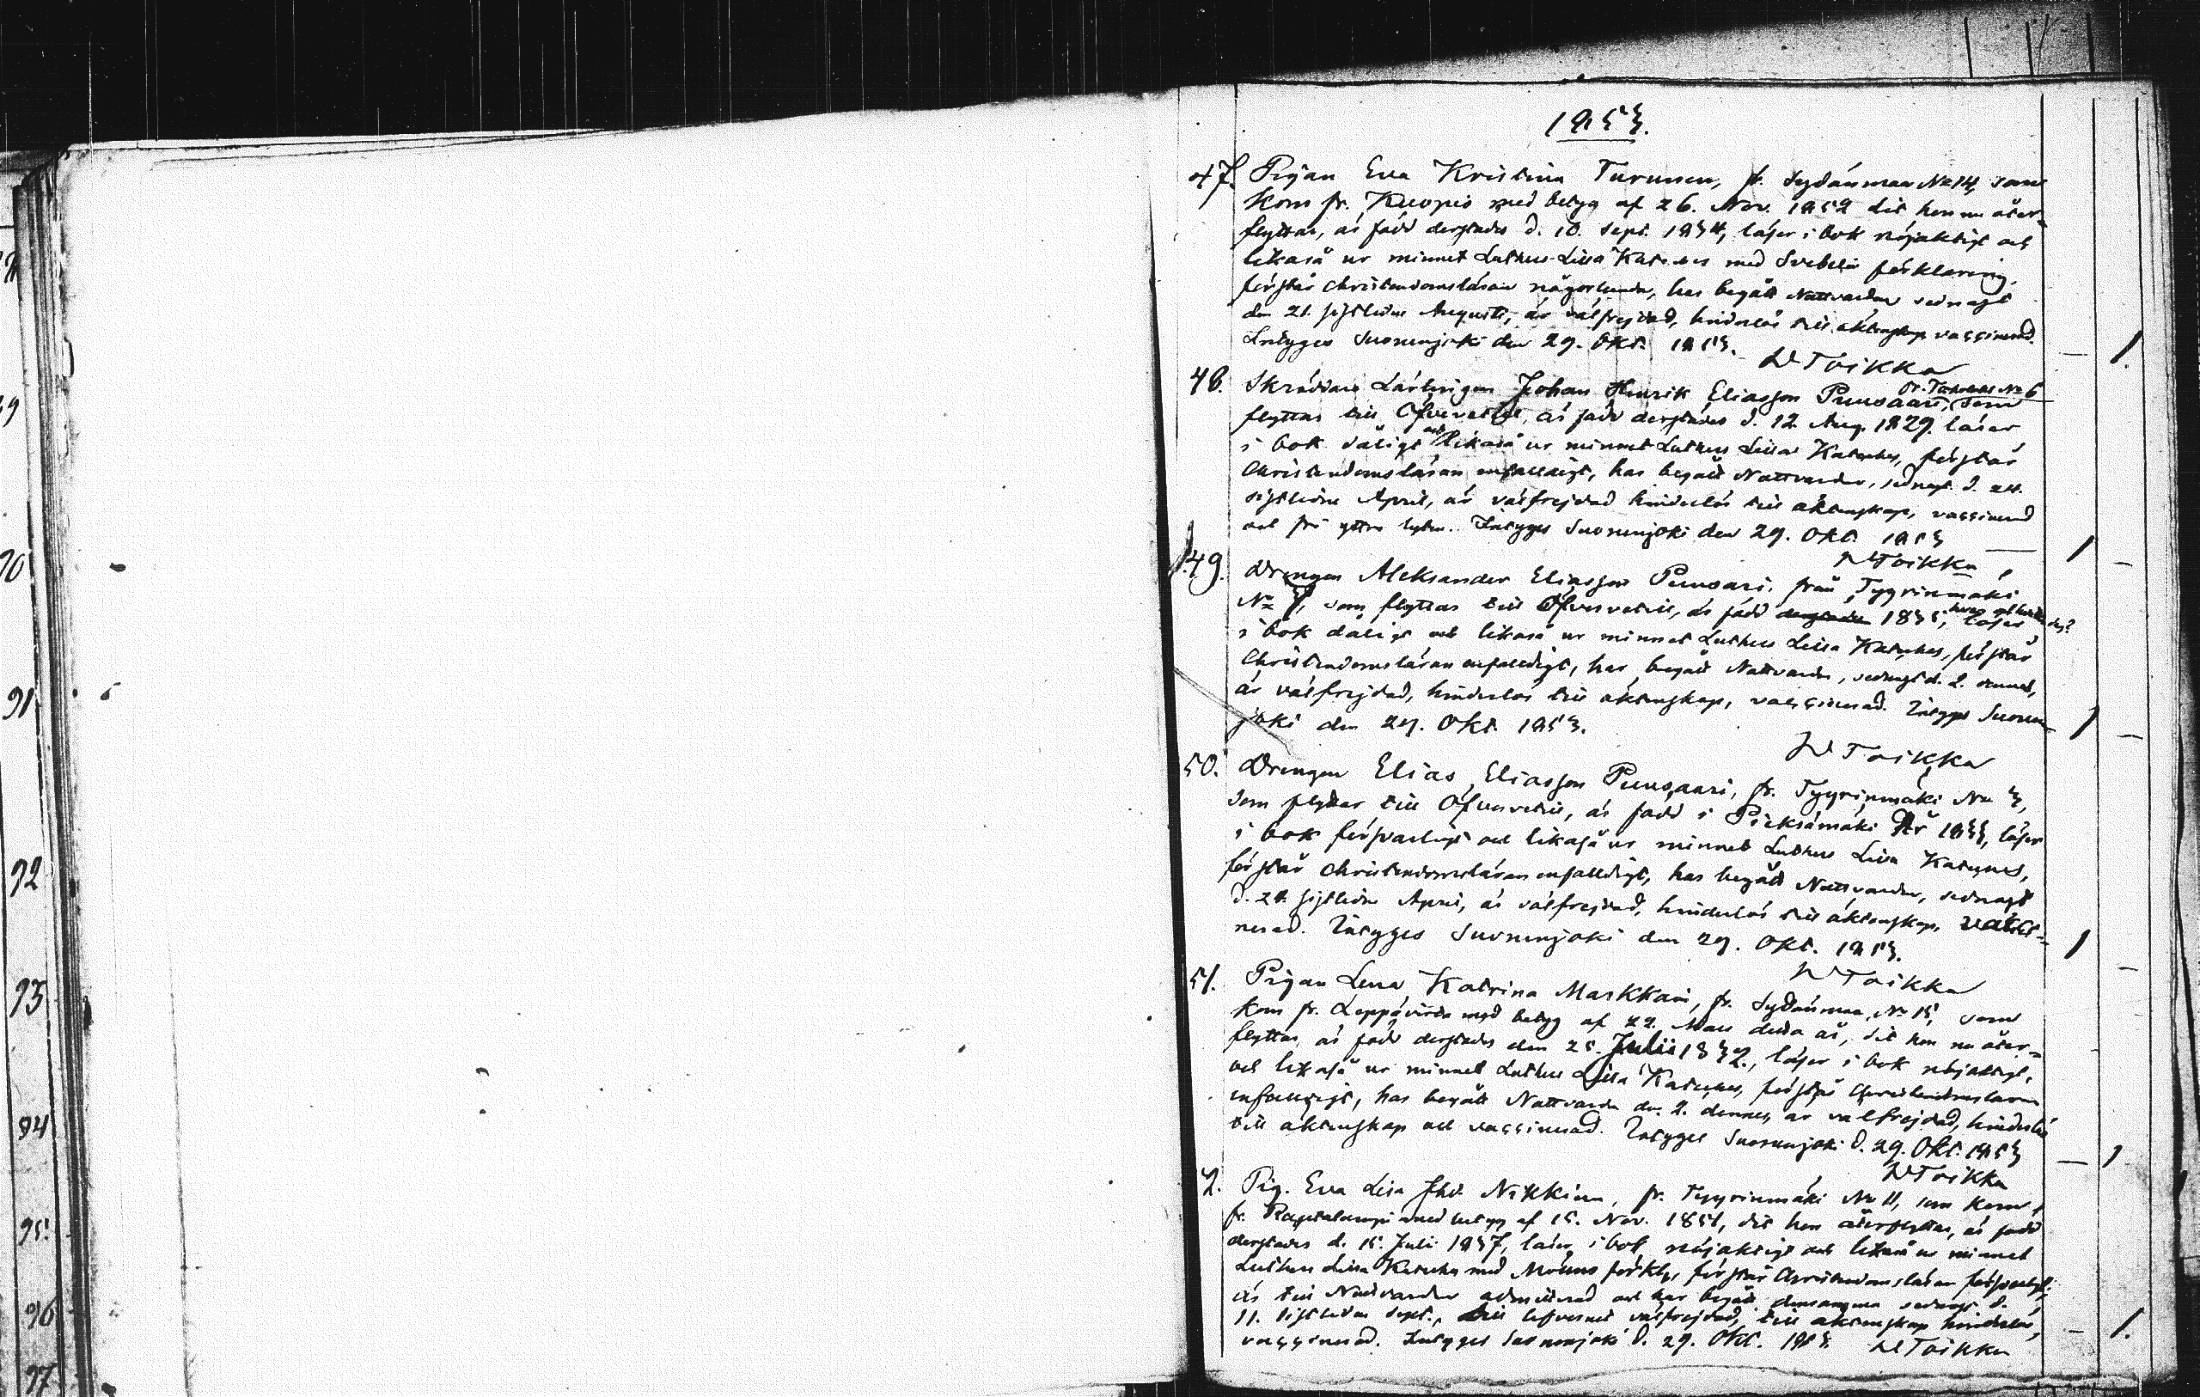 1853.
47. Pigan Eva Kristina Turunen, fr. Sydänmaa No 14, som
kom fr. Kuopio med betyg af 26. Nov. 1852 dit hon nu åter-
flyttar, är född derstädes d. 10. Sept. 1834, läser i bok nöjaktigt och
likaså ur minnet Luthers Lilla Kateches med Svebelii förklaring,
förstår christendomsläran någorlunda, har begått Nattvarden sednast
den 21. sistledne Augusti, är välfrejdad, hinderlös till äktenskap vaccinerad.
Intygas Suonenjoki den 29. Okt. 1853.
W Toikka
— 1.
48. Skräddare Lärlingen Johan Henrik Eliasson Puusaari, fr. Tyyrinmäki No 6 som
flyttar till Öfvervetil, är född derstädes d. 12 Aug. 1829. läser
i bok dåligt och likaså ur minnet Luthers Lilla Kateches, förstår
Christendomsläran enfaldigt, har begått Nattvarden, sednast d. 24.
sistledne April, är välfrejdad hinderlös till äktenskap, vaccinerad
och fri yttre lyten. Intygas Suonenjoki den 29. Okt. 1853
W Toikka
1 —
49. Drengen Aleksander Eliasson Puusaari, från Tyyrinmäki
No , som flyttar till Öfvervetil, är född derstädes 1835, läser
i bok dåligt och likaså ur minnet Luthers Lilla Kateches, förstår
Christendomsläran enfaldigt, har begått Nattvarden, sednast d. 2. dennes,
är välfrejdad, hinderlös till äktenskap, vaccinerad. Intygas Suonen-
joki den 29. Okt. 1853.
W Toikka
1 —
50. Drengen Elias Eliasson Puusaari, fr. Tyyrinmäki No 3,
som flyttar till Öfvervetil, är född i Pieksämäki År 1833, läser
i bok försvarligt och likaså ur minnet Luthers Lilla Kateches,
förstår christendomsläran enfaldigt, har begått Nattvarden, sednast
d. 24. sistledne April, är välfrejdad, hinderlös till äktenskap, vakci-
nerad. Intygas Suonenjoki den 29. Okt. 1853.
W Toikka
1 —
51. Pigan Lena Katrina Markkain, fr. Sydänmaa, No 15, som
kom fr. Leppävirta med betyg af 22. Mars detta år, dit hon nu åter-
flyttar, är född derstädes den 25. Julii 1832., läser i bok nöjaktigt,
och likaså ur minnet Luthers Lilla Kateches, förstår Christendomsläran
enfaldigt, har begått Nattvarden den 2. dennes, är välfrejdad, hinderlös
till äktenskap och vaccinerad. Intygas Suonenjoki d. 29. Okt. 1853
W Toikka
— 1
2. Pig. Eva Lisa Nikkinen, fr. Tyyrinmäki No 11, som kom
fr. Rautalampi med betyg af 15. Nov. 1851, dit hon återflyttar, är född
derstädes d. 15. Juli 1837, läser i bok nöjaktigt och likaså ur minnet
Luthers Lilla Kateches med förkl., förstår Christendomsläran försvarligt,
är till Nattvarden admitterad och har begått densamma sednast d.
11. sistledne Sept., till lefvernet välfrejdad, till äktenskap hinderlös,
vaccinerad. Intygas Suonenjoki d. 29. Okt. 1853. W Toikka
— 1.
90
91
92
93
94
95.
96
97